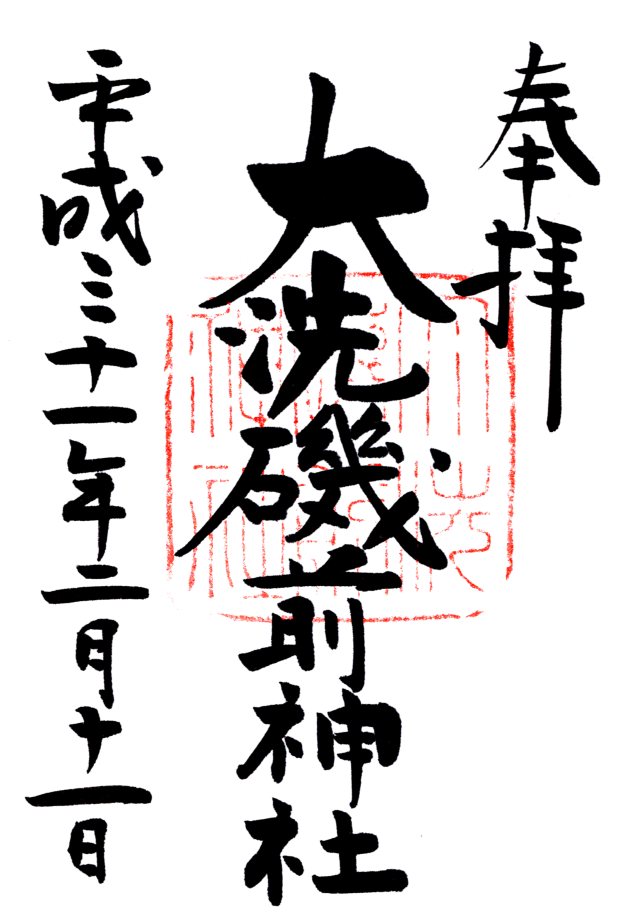 奉拝
大洗磯前神社
平成三十一年二月十一日